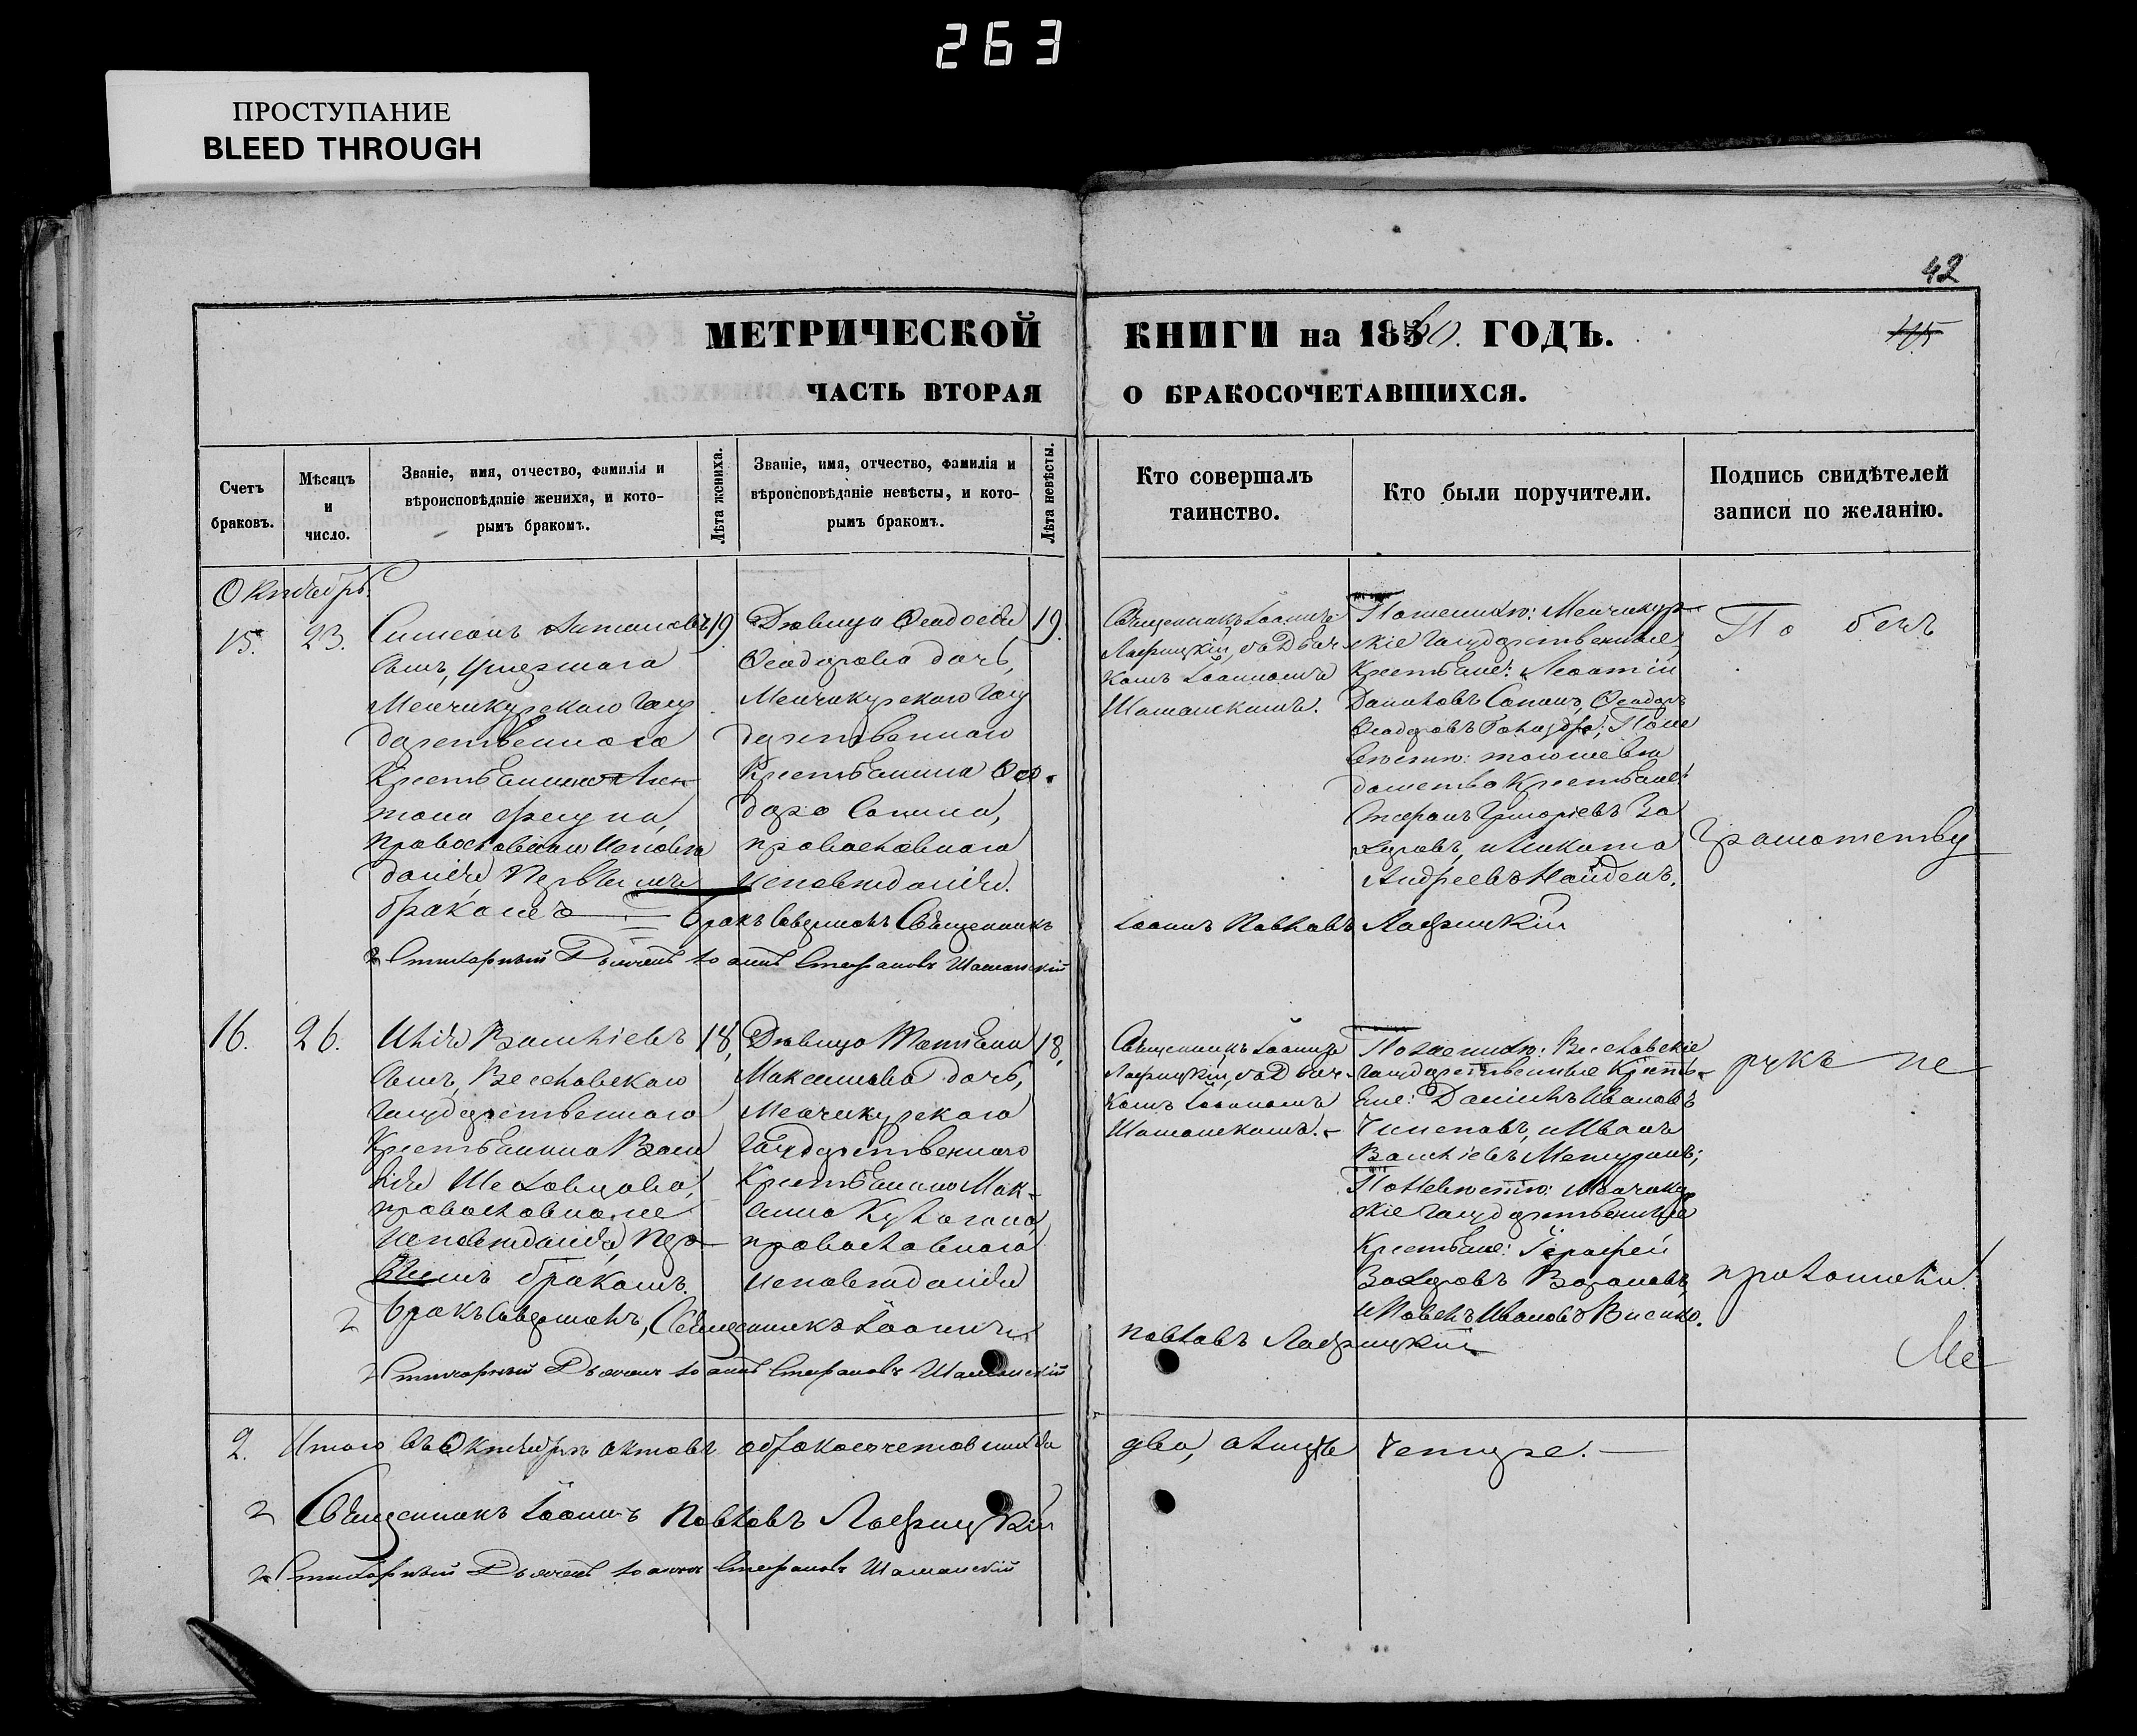 263
ПРОСТУПАНИЕ
BLEED THROUGH
42
МЕТРИЧЕСКОЙ КНИГИ на 1860. ГОДЪ.
ЧАСТЬ ВТОРАЯ О БРАКОСОЧЕТАВШИХСЯ.
Счетъ
браковъ.
Мѣсяцъ
и
число.
Званіе, имя, отчество, фамилія и
вѣроисповѣданіе жениха, и кото-
рымъ бракомъ.
Лѣта жениха.
Званіе, имя, отчество, фамилія и
вѣроисповѣданіе невѣсты, и кото-
рымъ бракомъ.
Лѣта невѣсты.
Кто совершалъ
таинство.
Кто были поручители.
Подпись свидѣтелей
записи по желанію.
Октябрь.
15.
23.
Симеонъ Антоновъ
сынъ,
Менчикурскаго Госу
дарственнаго
Крестьянина Ан
тона
православнаго исповѣ
данія первымъ
бракомъ
19
Дѣвица Ѳеодосія
Ѳеодорова дочь,
Менчикурскаго Госу
дарственнаго
Крестьянина Ѳео-
дора Сопина,
православнаго
исповѣданія.
19.
Священникъ Іоаннъ
Лафицкій, съ Дьяч-
комъ Іоанномъ
Шаманскимъ.
По женихѣ: Менчикур
скіе Государственные
Крестьяне: Леонтій
Даниловъ Сопинъ, Ѳеодоръ
Ѳеодоровъ По не
вѣстѣ: того же вѣ
домства Крестьяне:
Стефанъ Григоріевъ За
харовъ, и Никита
Андреевъ Найденъ.
По безъ
Грамотству
бракъ совершалъ Священникъ Іоаннъ Павловъ Лафицкій
Стихарный Дьячекъ Іоаннъ Стефановъ Шаманскій
16.
26.
Илія Василіевъ
сынъ, Веселовскаго
Государственнаго
Крестьянина Васи
лія Шеховцова,
православнаго
исповѣданія, пер
вымъ бракомъ.
18,
Дѣвица Татьяна
Максимова дочь,
Менчикурскаго
Государственнаго
Крестьянина Мак-
сима Кулагина,
православнаго
исповѣданія
18,
Священникъ Іоаннъ
Лафицкій, съ Дьяч-
комъ Іоанномъ
Шаманскимъ.
По женихѣ: Веселовскіе
Государственные Кресть-
яне: Даниилъ Ивановъ
и Иванъ
Василіевъ
По невѣстѣ: Менчикур
скіе Государственные
Крестьяне: Іерофей
Захаровъ Вороновъ,
и Павелъ Ивановъ
рукъ не
приложили.
бракъ совершалъ, Священникъ Іоаннъ Павловъ Лафицкій
Стихарный Дьячекъ Іоаннъ Стефановъ Шаманскій
2. Итого въ Октябрѣ актовъ о бракосочетавшихся два, а лицъ четыре.
Священникъ Іоаннъ Павловъ Лафицкій
Стихарный Дьячекъ Іоаннъ Стефановъ Шаманскій